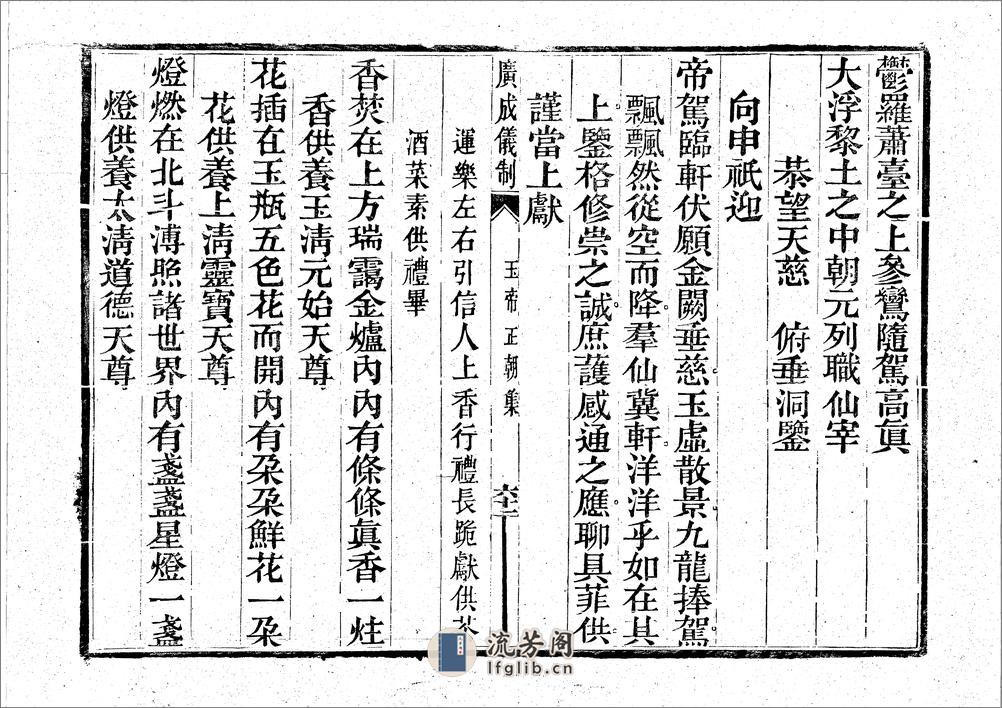 鬱羅蕭臺之上參鸞隨駕高眞
大浮黎土之中朝元列職仙宰
恭望天慈　俯垂洞鑒
向申祇迎
帝駕臨軒伏願金闕垂慈玉虛散景九龍捧駕
飄飄然從空而降羣仙冀軒洋洋乎如在具
上鑒格修崇之誠庶護感通之應聊具菲供
謹當上獻
廣成儀制　玉帝正朝集
運樂左右引信人上香行禮長跪獻供茶
酒菜素供禮畢
香焚在上方瑞靄金爐內內有條條眞香一炷
香供養玉淸元始天尊
花插在玉瓶五色花而開內有朶朶鮮花一朶
花供養上淸靈寶天尊
燈燃在北斗溥照諸世界內有盞盞星燈一盞
燈供養太淸道德天尊
流芳阁
lfglib.cn